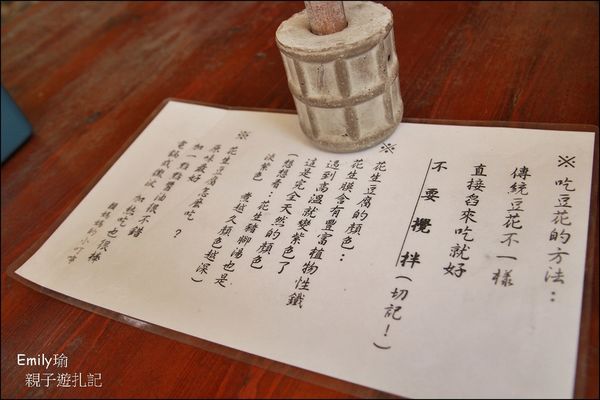 ※吃豆花的方法：
傳統豆花不一樣
直接舀來吃就好
不要攪拌(切記!)
花生豆腐的顏色：
花生膜含有豐富植物性鐵
遇到高溫就變紫色了
這是完全天然的顏色
(想想看：花生豬腳湯也是
淡紫色 煮越久顏色越深)
※花生豆腐怎麼吃？
原味最好
加一點點醬油很不錯
電鍋或微波加熱吃也很棒
顏媽媽的小叮嚀
Emily瑜
親子遊扎記